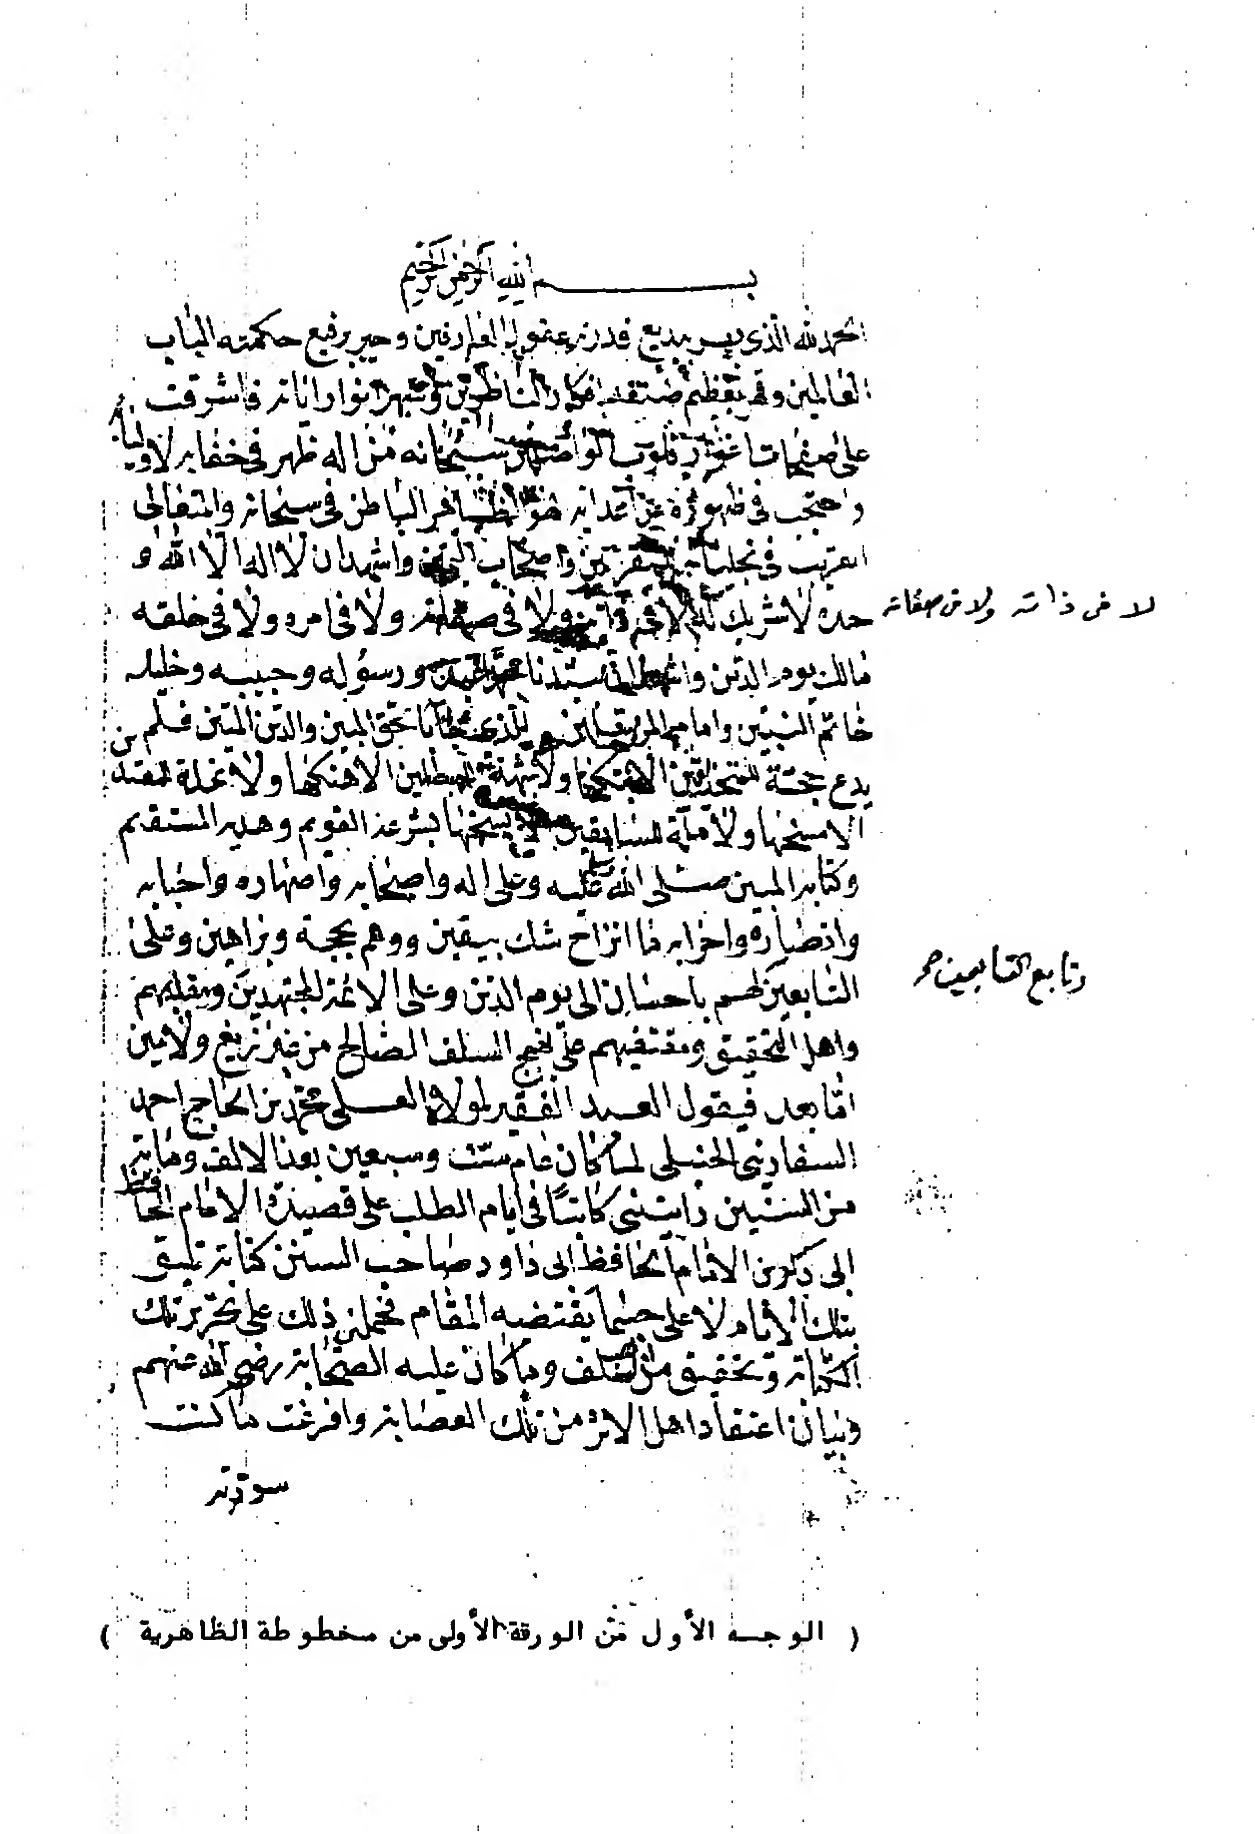 بسم الله الرحمن الرحيم
الحمد لله الذي بهر ببديع قدرته عقول العارفين وحير برفيع حكمته الباب
العالمين وفي تعظيم افكار الناظرين انوار اياته فاشرقت
على صفحات قلوب سبحانه من اله ظهر في خفايه لاوليايه
واحتجب في ظهوره عن اعدايه هو الظاهر الباطن في سبحاته والمتعالى
القريب في واصحاب واشهد ان لا اله الا الله و
حده لا شريك له لا في ذاته ولا في صفاته ولا في امره ولا في خلقه
لا في ذاته ولا في صفاته
مالك يوم الدين واشهد ان سيدنا محمدا ورسوله وحبيبه وخليله
خاتم النبيين وامام المرسلين الذي بالحق المبين والدين المتين فلم
يدع حجة الا ولا شبهة للمبطلين الا هتكها ولا نحلة لمعتد
الا مسخها ولا ملة للسابقين الا نسخها بشرعه القويم وهديه المستقيم
وكتابه المبين صلى الله عليه وسلم وعلى اله واصحابه واصهاره واحبابه
وانصاره واحزابه ما انزاح شك بيقين ووهم بحجة وبراهين وعلى
التابعين لهم باحسان الى يوم الدين وعلى الائمة المجتهدين ومقلديهم
وتابع التابعين
واهل التحقيق ومقتفيهم على نهج السلف الصالح من غير زيغ ولا مين
اما بعد فيقول العبد الفقير لمولاه العلي محمد بن الحاج احمد
السفاريني الحنبلي لما كان عام ست وسبعين بعد الالف وماية
من السنين رايتني كاتبا في ايام الطلب على قصيدة الامام الحافظ
ابي بكر بن الامام الحافظ ابي داود صاحب السنن كتابة تليق
بتلك الايام لا على حسب ما يقتضيه المقام فحملني ذلك على تحرير تلك
الكتابة وتحقيق مذهب السلف وما كان عليه الصحابة رضي الله عنهم
وبيان اعتقاد اهل الاثر من تلك العصابة وافرغت ما كنت
سودته
( الوجه الأول من الورقة الأولى من مخطوطة الظاهرية )